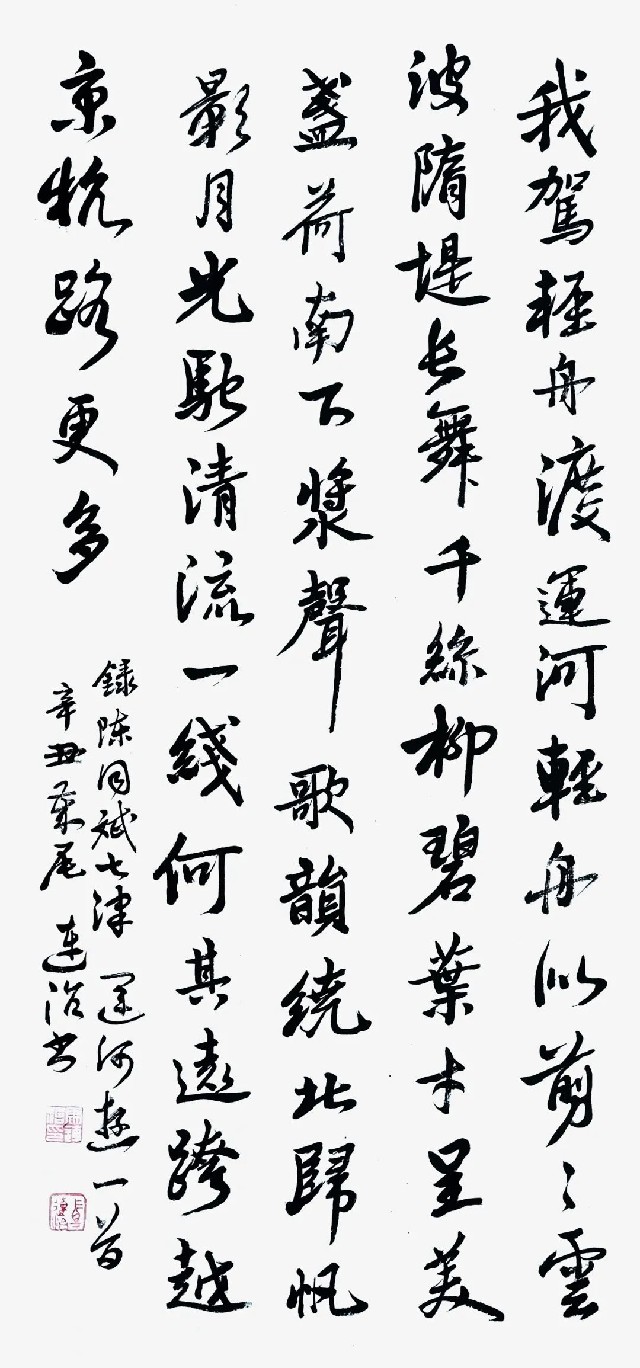 我駕輕舟渡運河輕舟似剪〻雲
波隋堤長舞千絲柳碧葉才呈美
盞荷南下漿聲歌韻繞北歸帆
影月光馳清流一綫何其遠跨越
京杭路更多
錄陈同斌七律運河遊一首
辛丑歲尾連治书